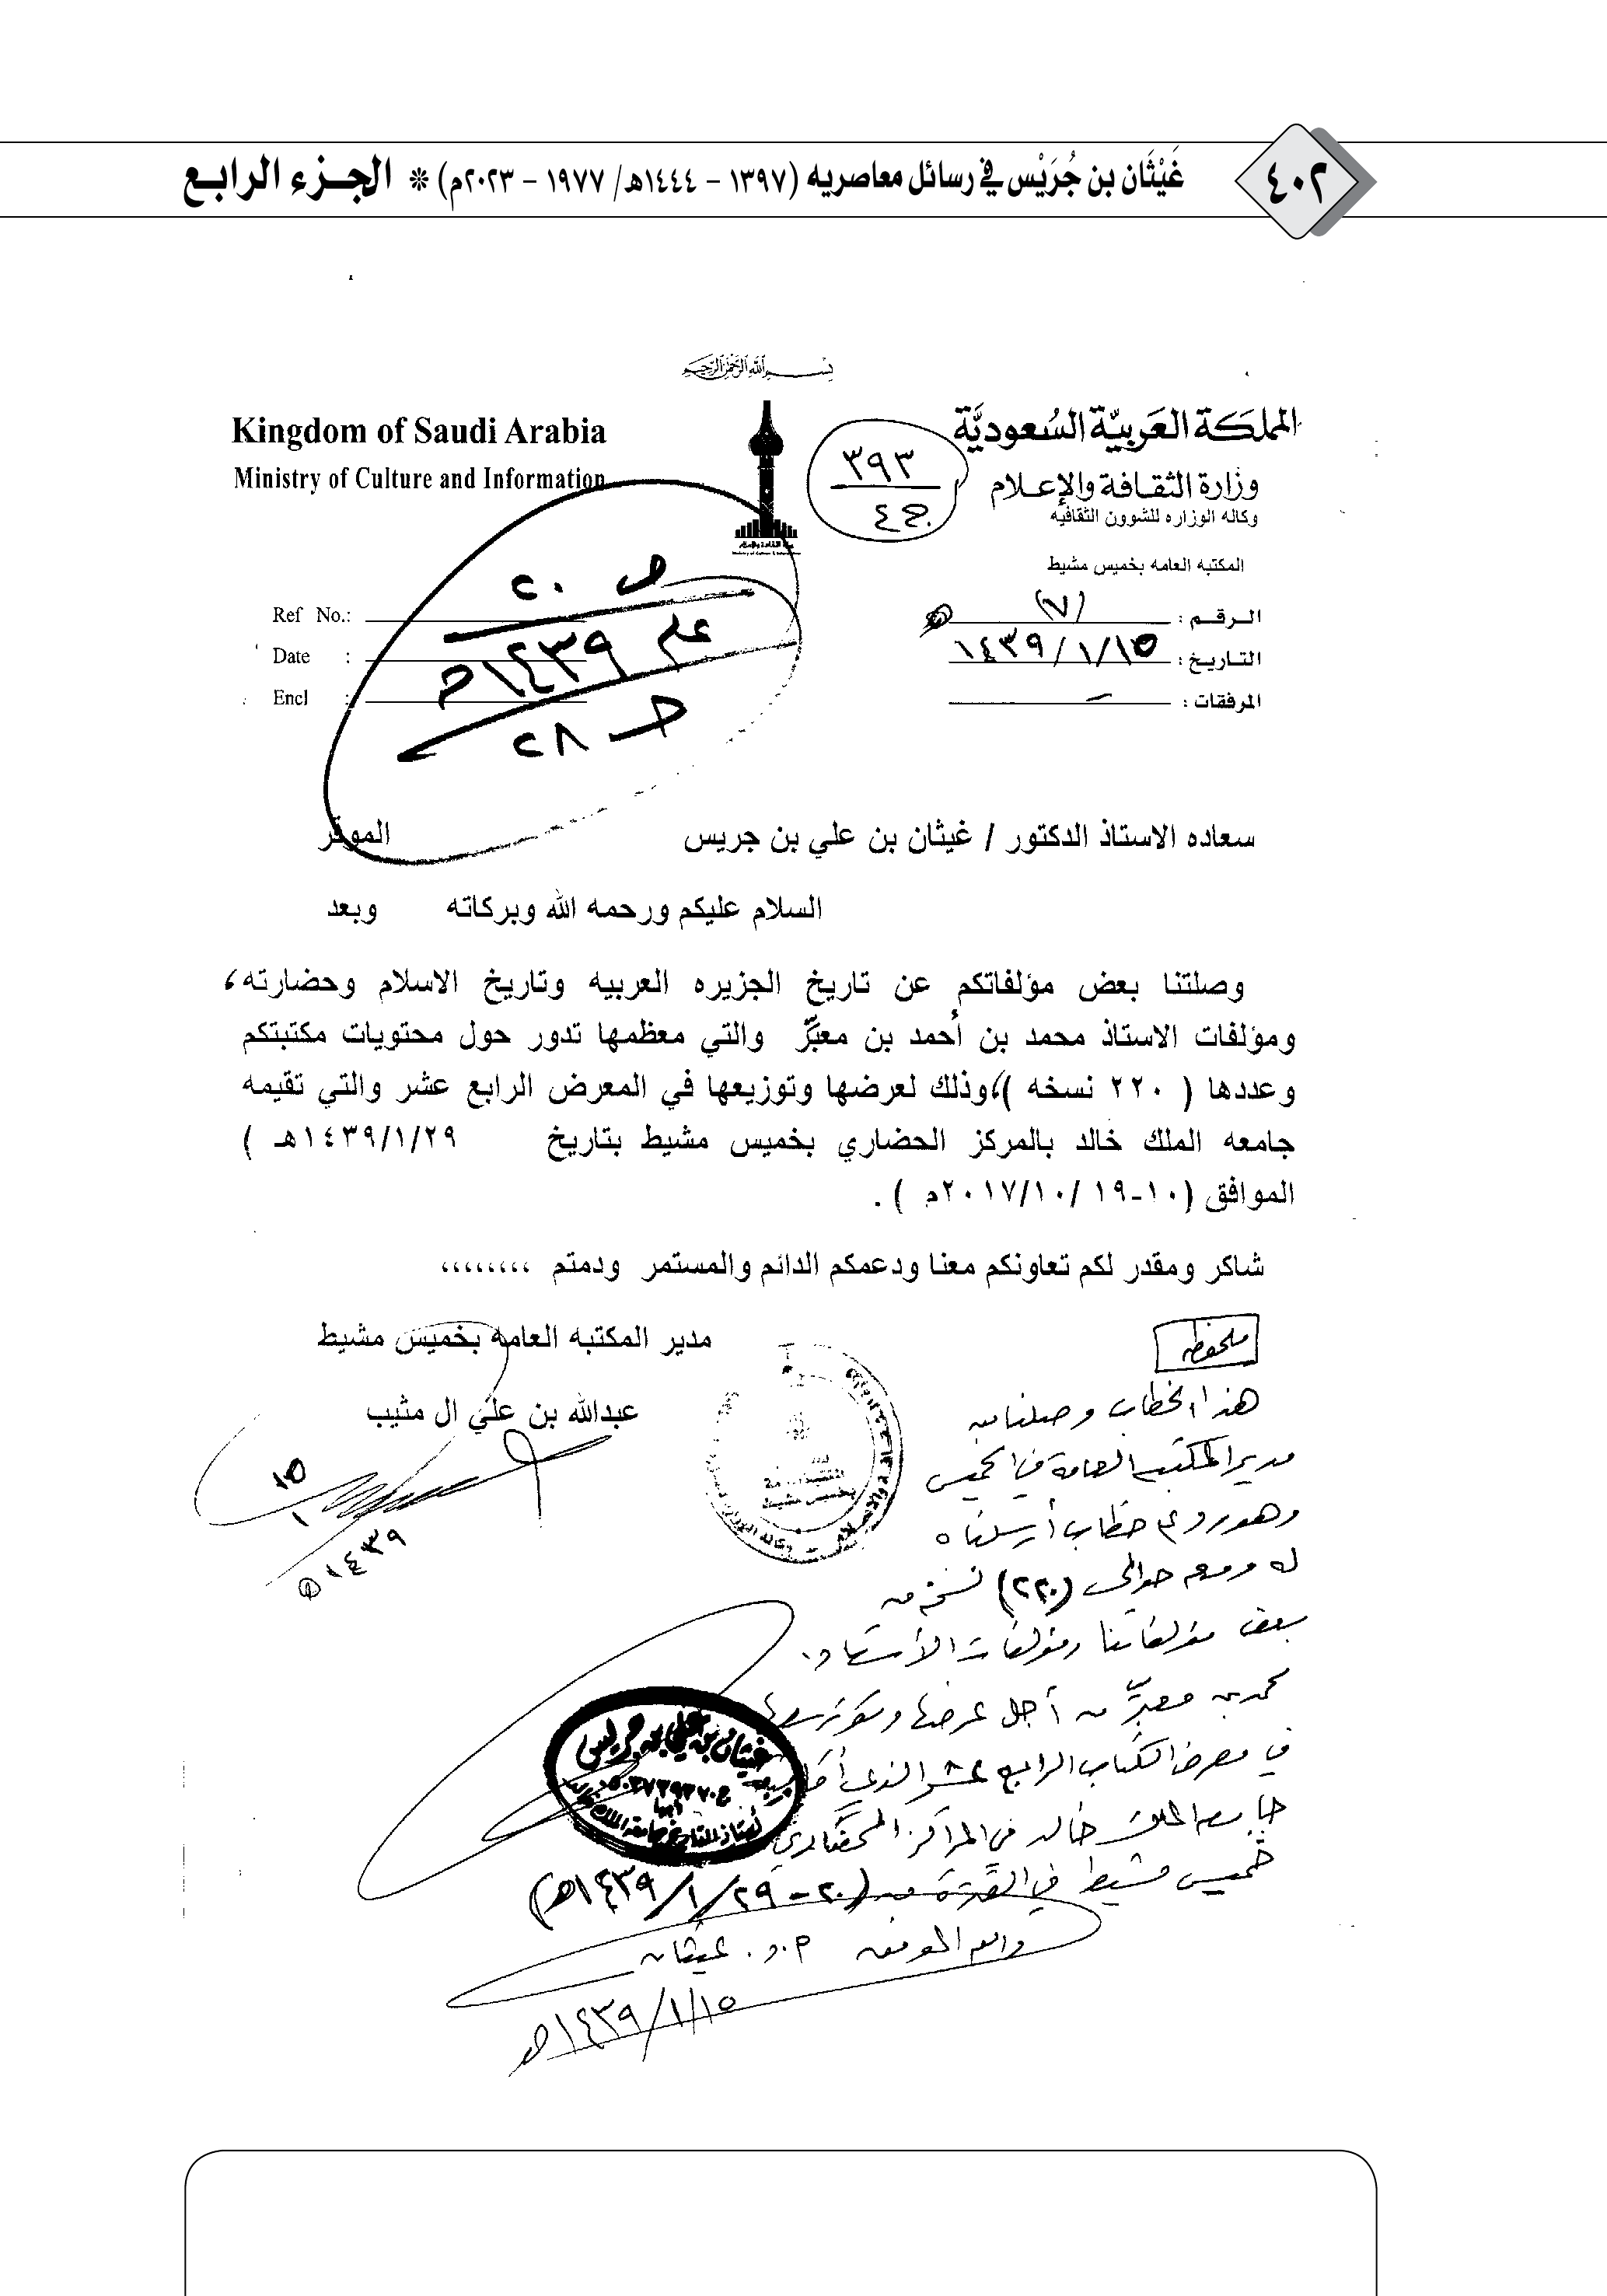 ٤٠٢
غَيْثَان بن جُرَيْس في رسائل معاصريه (١٣٩٧ – ١٤٤٤هـ/ ١٩٧٧ – ٢٠٢٣م) * الجزء الرابع
بسم الله الرحمن الرحيم
المملكة العربية السعودية
وزارة الثقافة والإعلام
وكاله الوزاره للشوون الثقافيه
المكتبه العامه بخميس مشيط
الرقم : (٧)
التاريخ : ١٤٣٩/١/١٥
المرفقات : –
٣٩٣
Kingdom of Saudi Arabia
Ministry of Culture and Information
Ref No.:
Date :
Encl :
٢٠
١٤٣٩هـ
٢٨
سعاده الاستاذ الدكتور / غيثان بن علي بن جريس الموقر
السلام عليكم ورحمه الله وبركاته وبعد
وصلتنا بعض مؤلفاتكم عن تاريخ الجزيره العربيه وتاريخ الاسلام وحضارته،
ومؤلفات الاستاذ محمد بن أحمد بن معبّر والتي معظمها تدور حول محتويات مكتبتكم
وعددها ( ٢٢٠ نسخه )،وذلك لعرضها وتوزيعها في المعرض الرابع عشر والتي تقيمه
جامعه الملك خالد بالمركز الحضاري بخميس مشيط بتاريخ ١٤٣٩/١/٢٩هـ )
الموافق (١٠-١٩ /٢٠١٧/١٠م ) .
شاكر ومقدر لكم تعاونكم معنا ودعمكم الدائم والمستمر ودمتم ،،،،،،،،
مدير المكتبه العامه بخميس مشيط
عبدالله بن علي ال مثيب
١٥
١
١٤٣٩هـ
ملحوظه
هذا الخطاب وصلنا من
مدير المكتبه العامة في الخميس
وهو رد على خطاب أرسلناه
له ومعه حوالي (٢٢٠) نسخة من
بعض مؤلفاتنا ومؤلفات الأستاذ.
محمد بن معبّر من أجل عرضها وتوزيعها
في معرض الكتاب الرابع عشر الذي
جامعه الملك خالد في المركز الحضاري
خميس مشيط في الفترة من (٢٠-١٤٣٩/١/٢٩هـ)
والله الموفق أ.د. غيثان
١٤٣٩/١/١٥هـ
غيثان بن علي بن جريس
أبها
أستاذ التاريخ بجامعة الملك خالد